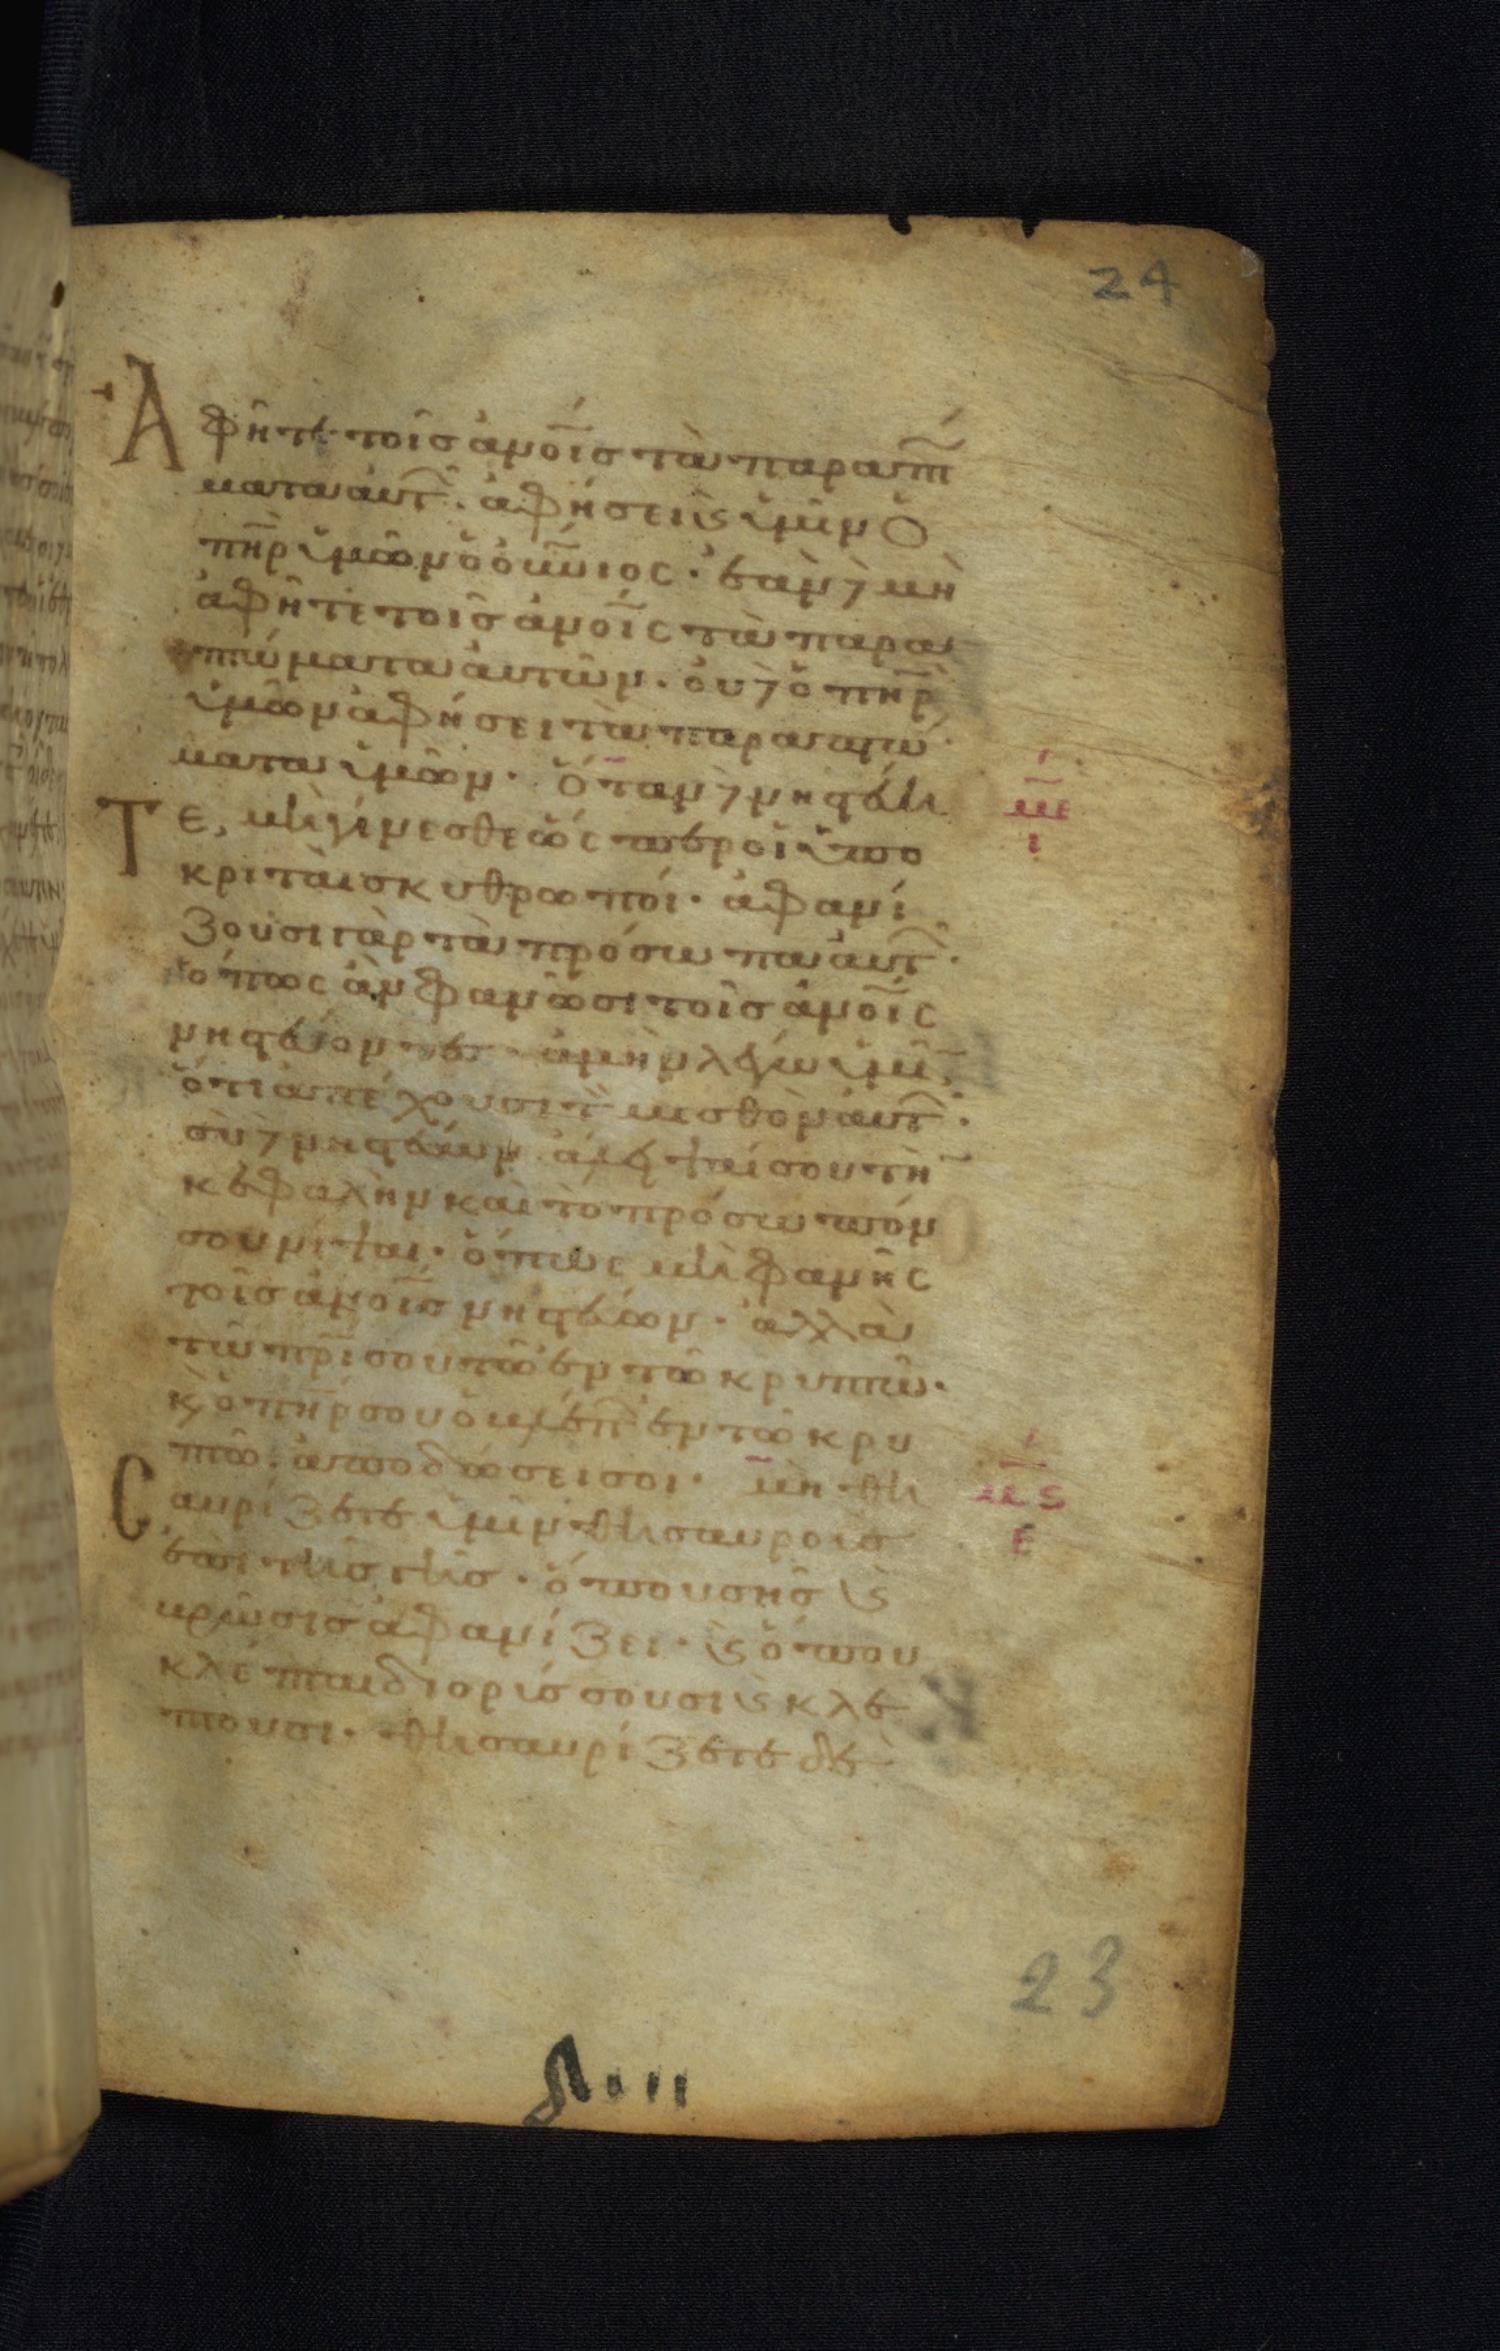 24
Ἀφῆτε τοῖς ἀνοῖς τὰ παραπτώ
ματα αὐτῶν. ἀφήσει ϗ ὑμῖν ὁ
πηρ ὑμῶν ὁ οὐνιος. ἐὰν δὲ μὴ
ἀφῆτε τοῖς ἀνοῖς τὰ παρα
πτώματα αὐτῶν. οὐδὲ ὁ πηρ
ὑμῶν ἀφήσει τὰ παραπτώ
ματα ὑμῶν. ὅταν δὲ νηστεύη
τε, μὴ γίνεσθε ὡς ὥσπερ οἱ ὑπο
κριταὶ σκυθρωποί. ἀφανί
ζουσι γὰρ τὰ πρόσωπα αὐτῶν.
ὅπως ἂν φανῶσι τοῖς ἀνοῖς
νηστεύοντες. ἀμὴν λέγω ὑμῖν,
ὅτι ἀπέχουσι τὸν μισθὸν αὐτῶν.
σὺ δὲ νηστεύων ἄλειψαί σου τὴν
κεφαλὴν καὶ τὸ πρόσωπόν
σου νίψαι. ὅπως μὴ φανῇς
τοῖς ἀνοῖς νηστεύων. ἀλλὰ
τῷ πρί σου τῷ ἐν τῷ κρυπτῷ.
ϗ ὁ πηρ σου ὁ βλέπων ἐν τῷ κρυ
πτῷ. ἀποδώσει σοι. μὴ θη
σαυρίζετε ὑμῖν θησαυροὺς
ἐπὶ τῆς γῆς. ὅπου σὴς ϗ
βρῶσις ἀφανίζει. ϗ ὅπου
κλέπται διορύσσουσι ϗ κλέ
πτουσι. θησαυρίζετε δὲ
με
ι
μς
ε
23